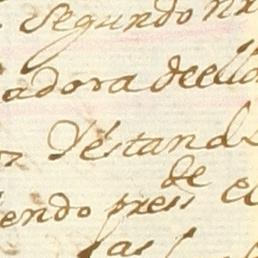 Segundo
adora deello
Yestand
de
endo press el
las